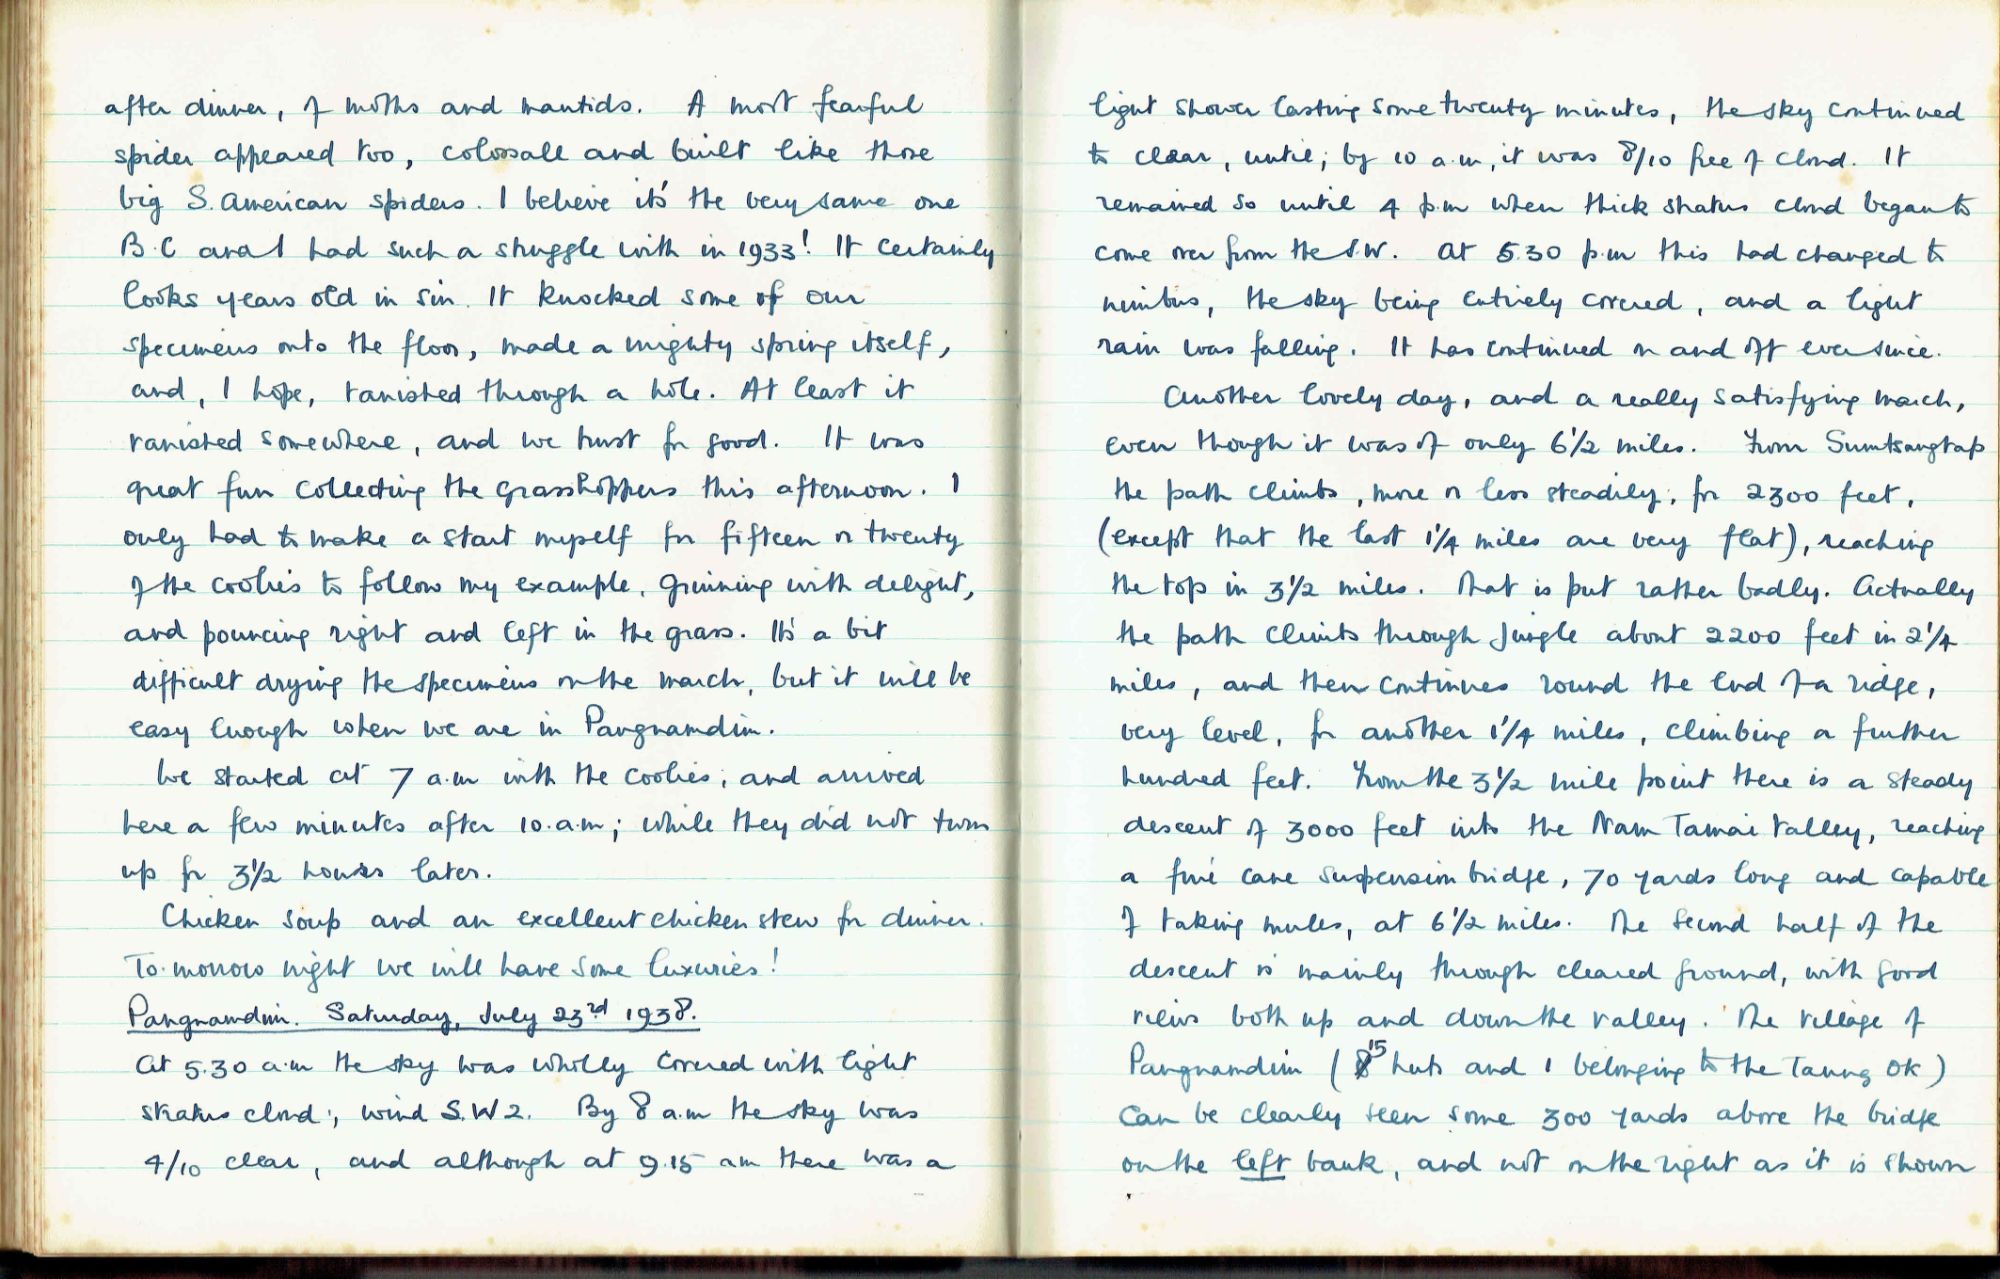 after dinner, of moths and mantids. A most fearful
spider appeared too, colossall and built like those
big S. American spiders. I believe it's the very same one
B.C and I had such a struggle with in 1933! It certainly
looks years old in sin. It knocked some of our
specimens onto the floor, made a mighty spring itself,
and, I hope, vanished through a hole. At least it
vanished somewhere, and we trust for good. It was
great fun collecting the grasshoppers this afternoon. I
only had to make a start myself for fifteen or twenty
of the coolies to follow my example, grinning with delight,
and pouncing right and left in the grass. It's a bit
difficult drying the specimens on the march, but it will be
easy enough when we are in Pangnamdim.
We started at 7 a.m with the coolies, and arrived
here a few minutes after 10.a.m; while they did not turn
up for 3½ hours later.
Chicken soup and an excellent chicken stew for dinner.
To-morrow night we will have some luxuries!
Pangnamdim. Saturday, July 23rd 1938.
At 5.30 a.m the sky was wholly covered with light
stratus cloud; wind S.W 2. By 8 a.m the sky was
4/10 clear, and although at 9.15 am there was a
light shower lasting some twenty minutes, the sky continued
to clear, until, by 10 a.m, it was 8/10 free of cloud. It
remained so until 4 p.m when thick stratus cloud began to
come over from the S.W. At 5.30 p.m this had changed to
nimbus, the sky being entirely covered, and a light
rain was falling. It has continued on and off ever since.
Another lovely day, and a really satisfying march,
even though it was of only 6½ miles. From Sumtsangtap
the path climbs, more or less steadily, for 2300 feet,
(except that the last 1¼ miles are very flat), reaching
the top in 3½ miles. That is put rather badly. Actually
the path climbs through jungle about 2200 feet in 2¼
miles, and then continues round the end of a ridge,
very level, for another 1¼ miles, climbing a further
hundred feet. From the 3½ mile point there is a steady
descent of 3000 feet into the Nam Tamai Valley, reaching
a fine cane suspension bridge, 70 yards long and capable
of taking mules, at 6½ miles. The second half of the
descent is mainly through cleared ground, with good
views both up and down the valley. The village of
Pangnamdim (15 huts and 1 belonging to the Taung OK)
can be clearly seen some 300 yards above the bridge
on the left bank, and not on the right as it is shown